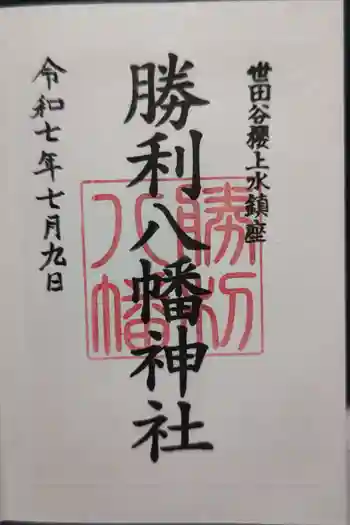 世田谷櫻上水鎮座
勝利八幡神社
勝利八幡
令和七年七月九日